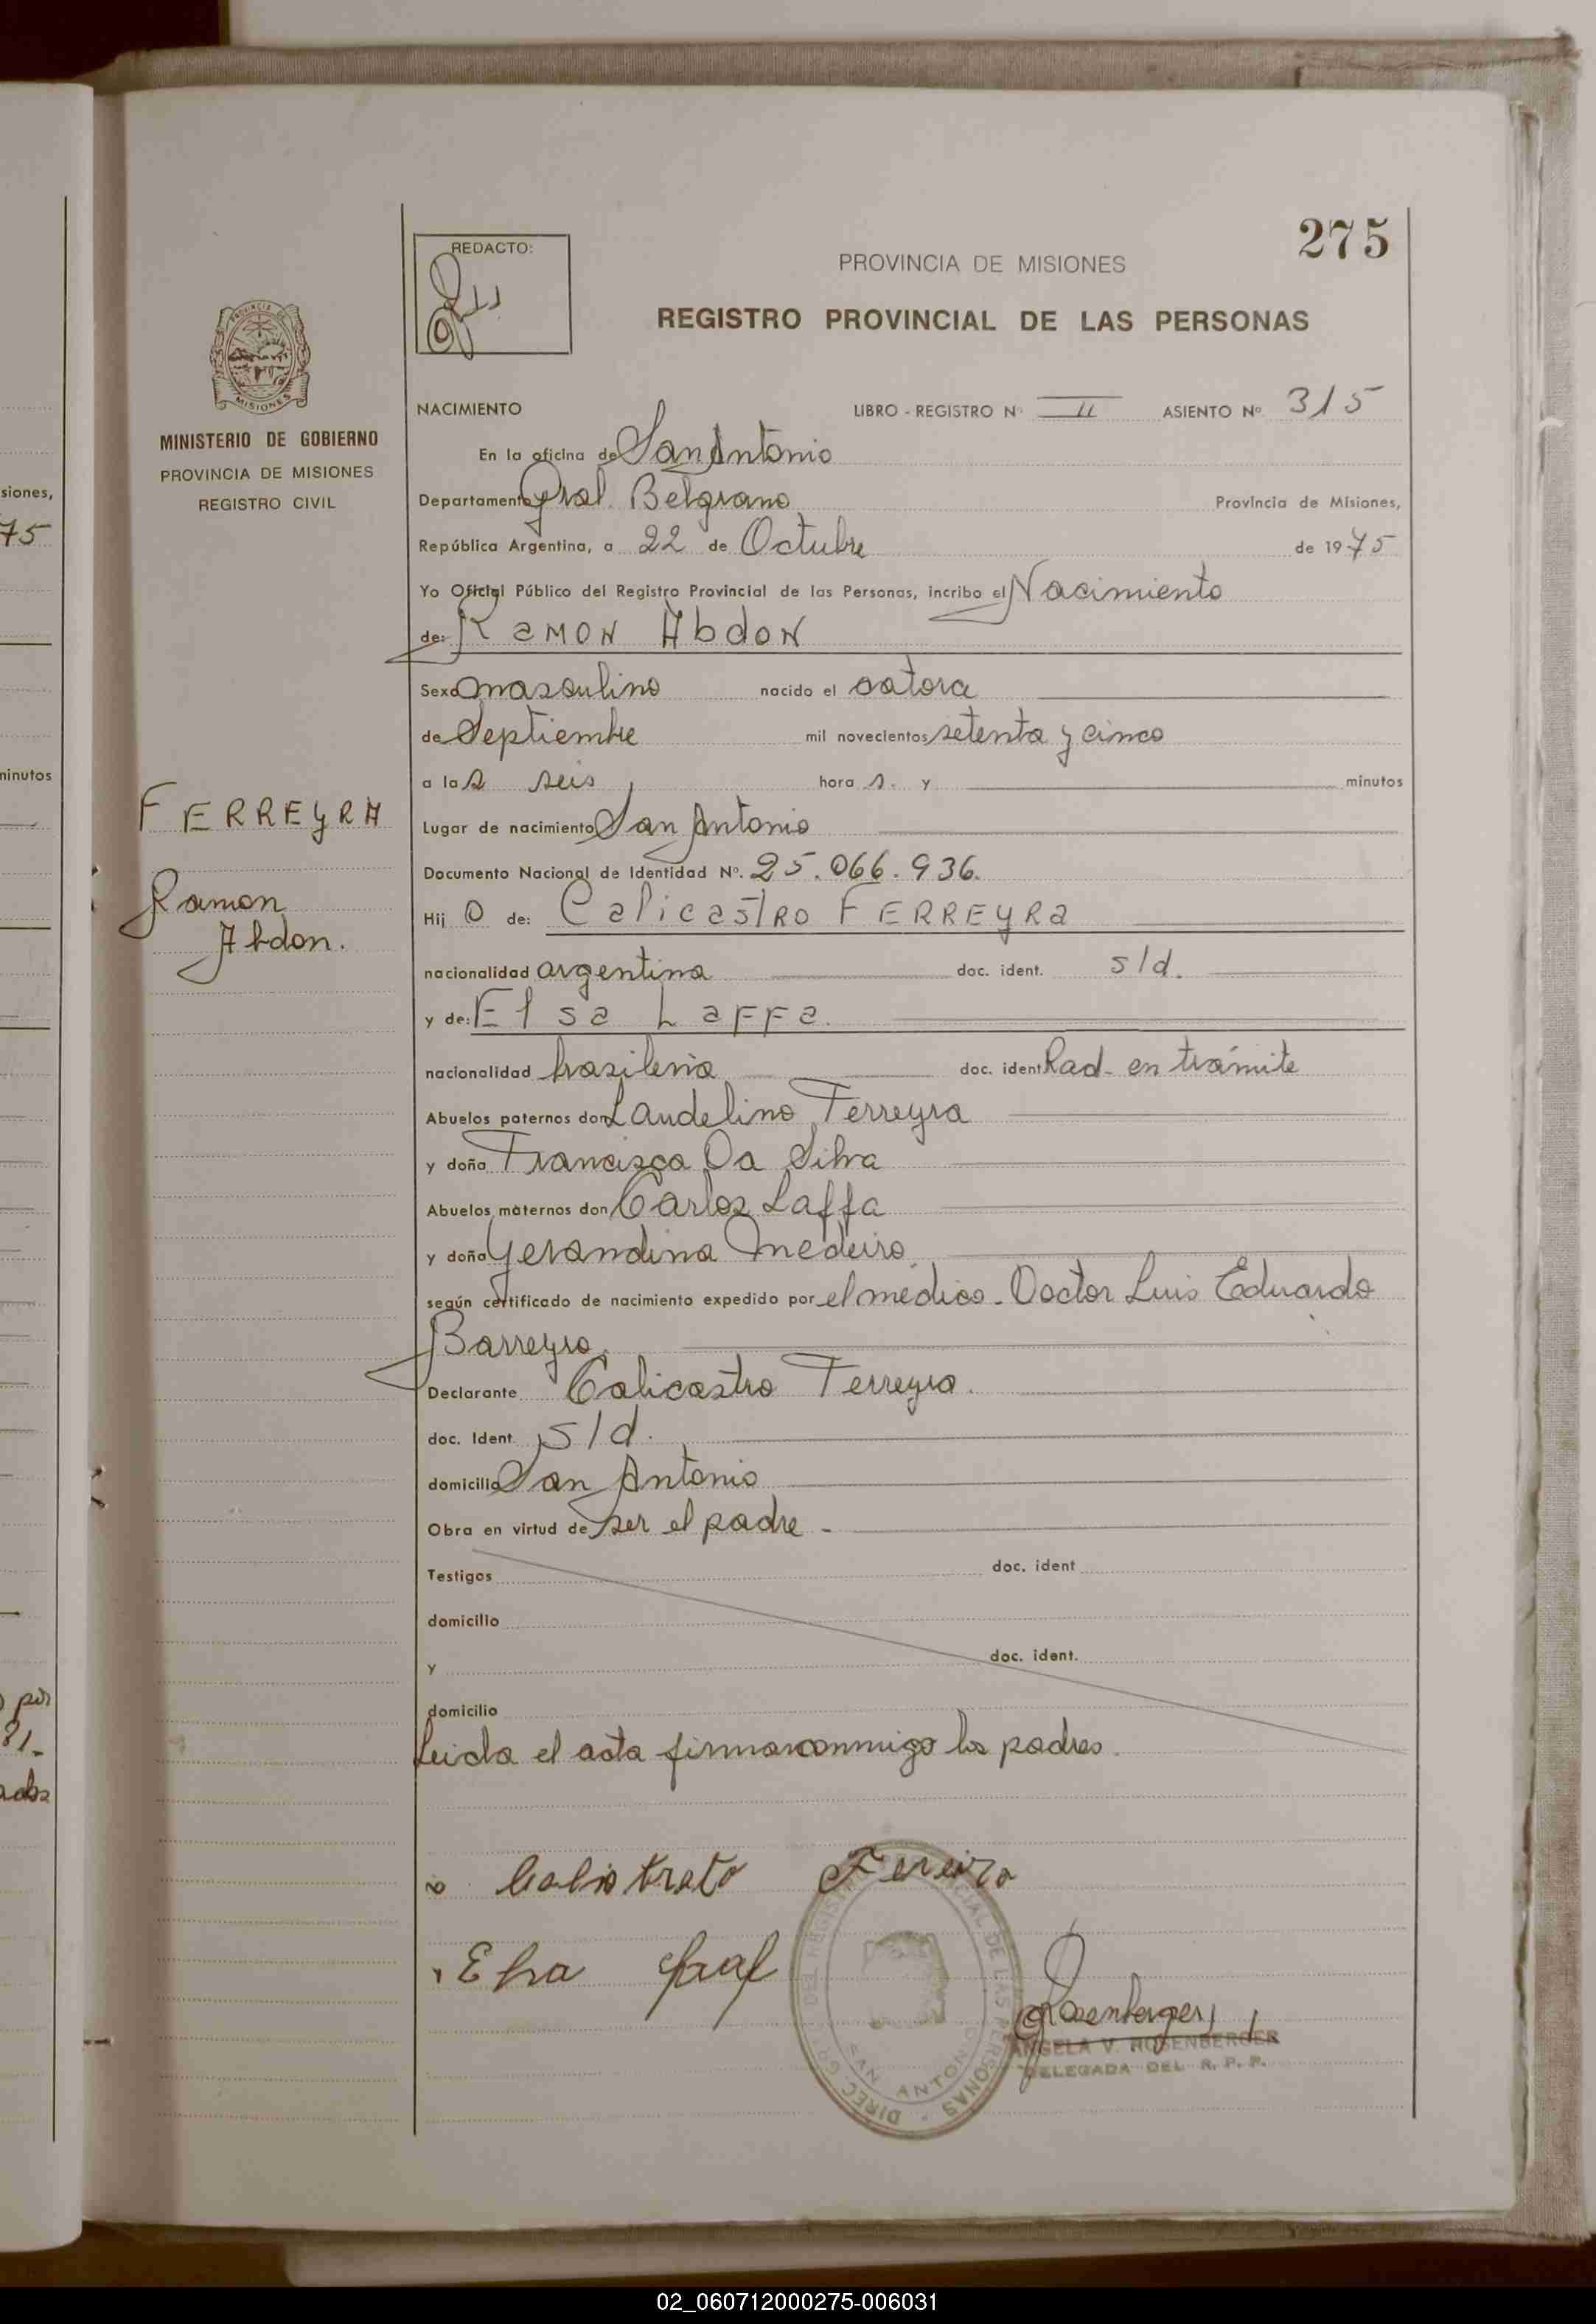 275
REDACTO:
PROVINCIA DE MISIONES
REGISTRO PROVINCIAL DE LAS PERSONAS
MINISTERIO DE GOBIERNO
PROVINCIA DE MISIONES
REGISTRO CIVIL
FERREYRA
Ramon
Abdon.
NACIMIENTO LIBRO - REGISTRO Nº II ASIENTO Nº 315
En la oficina de San Antonio
Departamento Gral. Belgrano Provincia de Misiones,
República Argentina, a 22 de Octubre de 1975
Yo Oficial Público del Registro Provincial de las Personas, incribo el Nacimiento
de: RAMON Abdon
Sexo masculino nacido el catorce
de Septiembre mil novecientos setenta y cinco
a las seis horas. y minutos
Lugar de nacimiento San Antonio
Documento Nacional de Identidad Nº. 25.066.936.
Hijo de: Calicastro FERREYRa
nacionalidad argentina doc. ident. s/d.
y de: Elsa Laffa.
nacionalidad brasileña doc. ident Rad. en trámite
Abuelos paternos don Laudelino Ferreyra
y doña Francisca Da Silva
Abuelos maternos don Carlos Laffa
y doña Gerandina Medeiro
según certificado de nacimiento expedido por el médico. Doctor Luis Eduardo
Barreyro.
Declarante Calicastro Ferreyra.
doc. Ident s/d.
domicilio San Antonio
Obra en virtud de ser el padre -
Testigos doc. ident
domicilio
y doc. ident.
domicilio
Leida el acta firman conmigo los padres.
Calistrato Fereira
Elsa
Rosenberger
ANGELA V. ROSENBERGER
DELEGADA DEL R. P. P.
SAN ANTONIO
siones,
75
minutos
por
81.
02_060712000275-006031